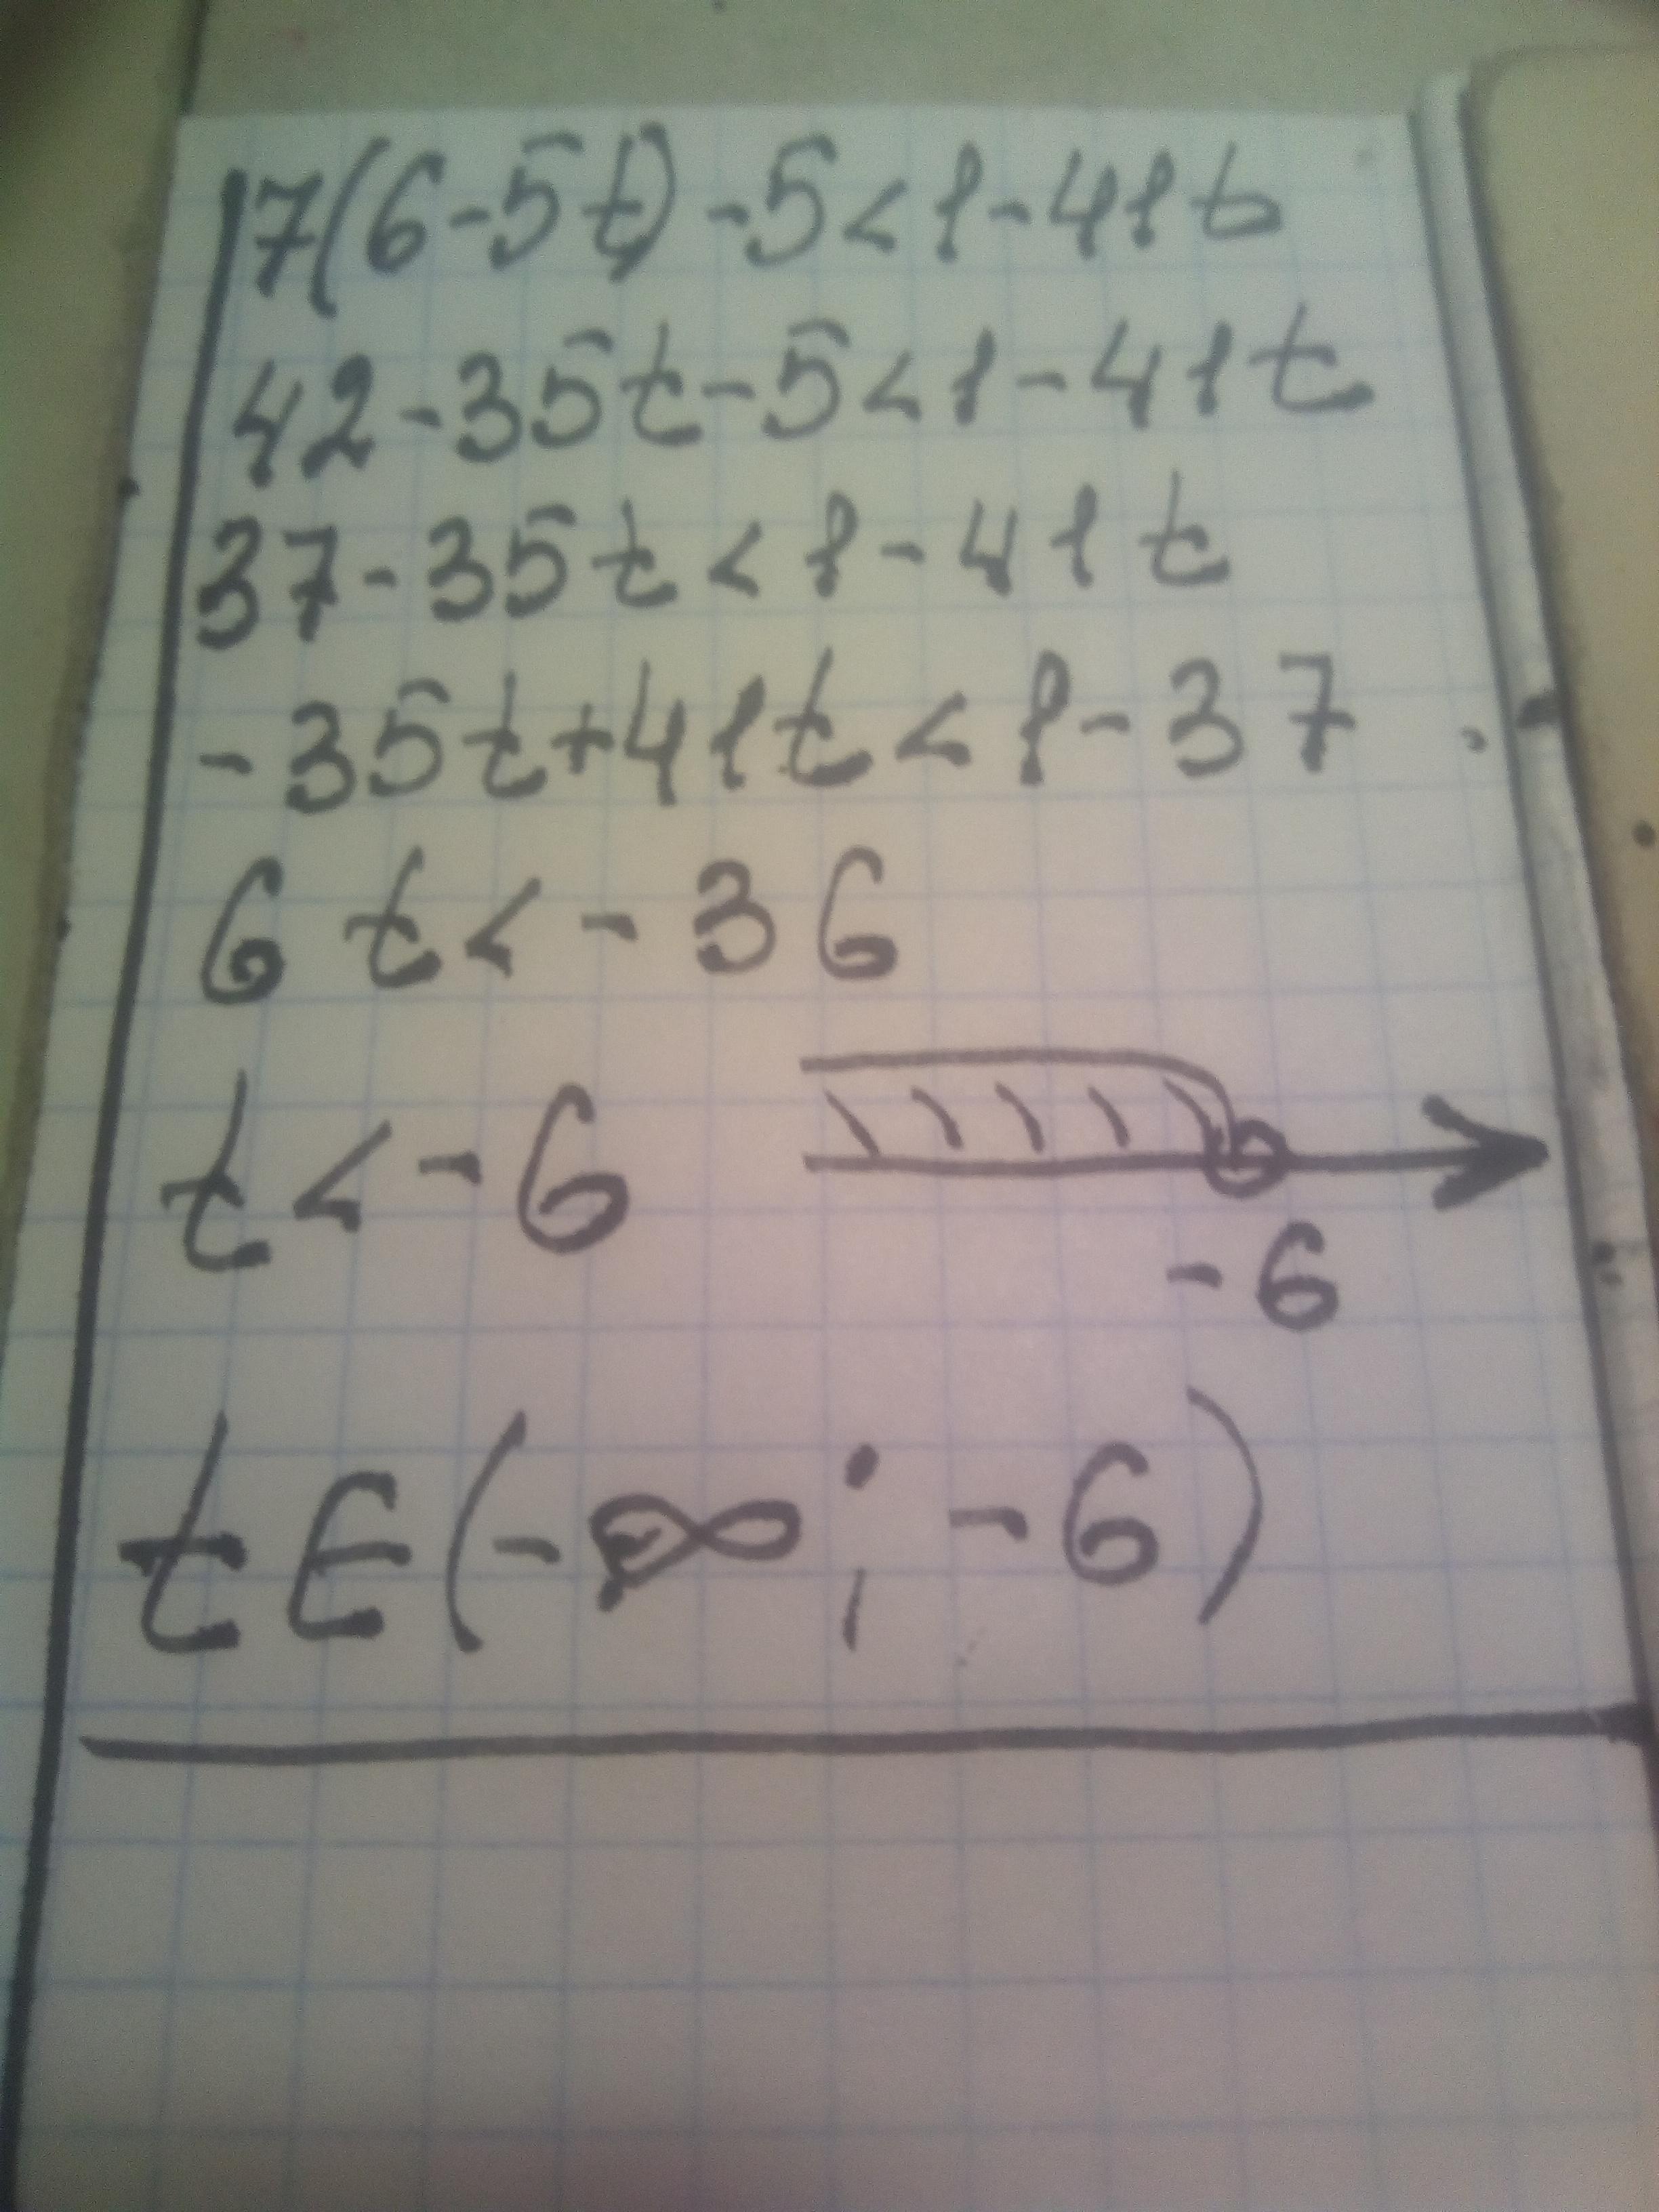 7(6-5t)-5<1-41t
42-35t-5<1-41t
37-35t<1-41t
-35t+41t<1-37
6t<-36
t<-6
-6
t∈(-∞;-6)